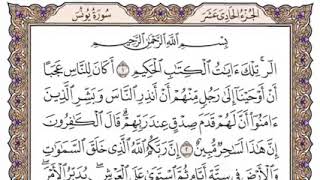 الجزء الحادي عشر
سورة يونس
بِسْمِ اللَّهِ الرَّحْمَٰنِ الرَّحِيمِ
الٓر ۚ تِلْكَ ءَايَٰتُ ٱلْكِتَٰبِ ٱلْحَكِيمِ ١ أَكَانَ لِلنَّاسِ عَجَبًا
أَنْ أَوْحَيْنَآ إِلَىٰ رَجُلٍ مِّنْهُمْ أَنْ أَنذِرِ ٱلنَّاسَ وَبَشِّرِ ٱلَّذِينَ
ءَامَنُوٓا۟ أَنَّ لَهُمْ قَدَمَ صِدْقٍ عِندَ رَبِّهِمْ ۗ قَالَ ٱلْكَٰفِرُونَ
إِنَّ هَٰذَا لَسَٰحِرٌ مُّبِينٌ ٢ إِنَّ رَبَّكُمُ ٱللَّهُ ٱلَّذِى خَلَقَ ٱلسَّمَٰوَٰتِ
وَٱلْأَرْضَ فِى سِتَّةِ أَيَّامٍ ثُمَّ ٱسْتَوَىٰ عَلَى ٱلْعَرْشِ ۖ يُدَبِّرُ ٱلْأَمْرَ ۖ